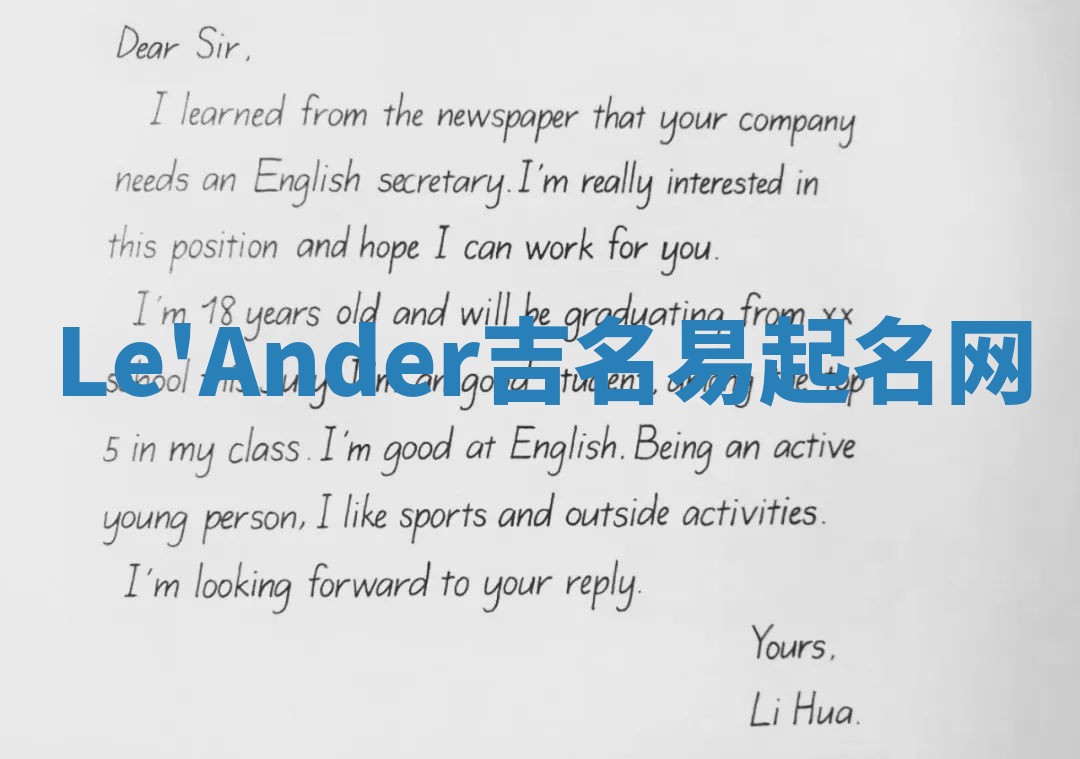 Dear Sir,
I learned from the newspaper that your company
needs an English secretary. I'm really interested in
this position and hope I can work for you.
I'm 18 years old and will be graduating from xx
Le'Ander吉名易起名网
school this July. I'm an good student, among the top
5 in my class. I'm good at English. Being an active
young person, I like sports and outside activities.
I'm looking forward to your reply.
Yours,
Li Hua.